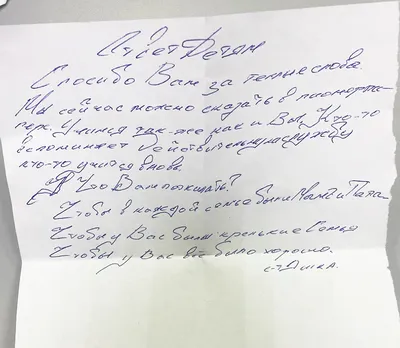 Ответ Детям
Спосибо Вам за теплые слова.
Мы сейчас можно сказать в
Учимся так-же как и Вы. Кто-то
вспоминает действительную службу
кто-то учится внова.
Что Вам пожелать?
Чтобы в каждой семье были Мама и Папа
Чтобы у Вас были крепкие Семья
Чтобы у Вас всё было хорошо.